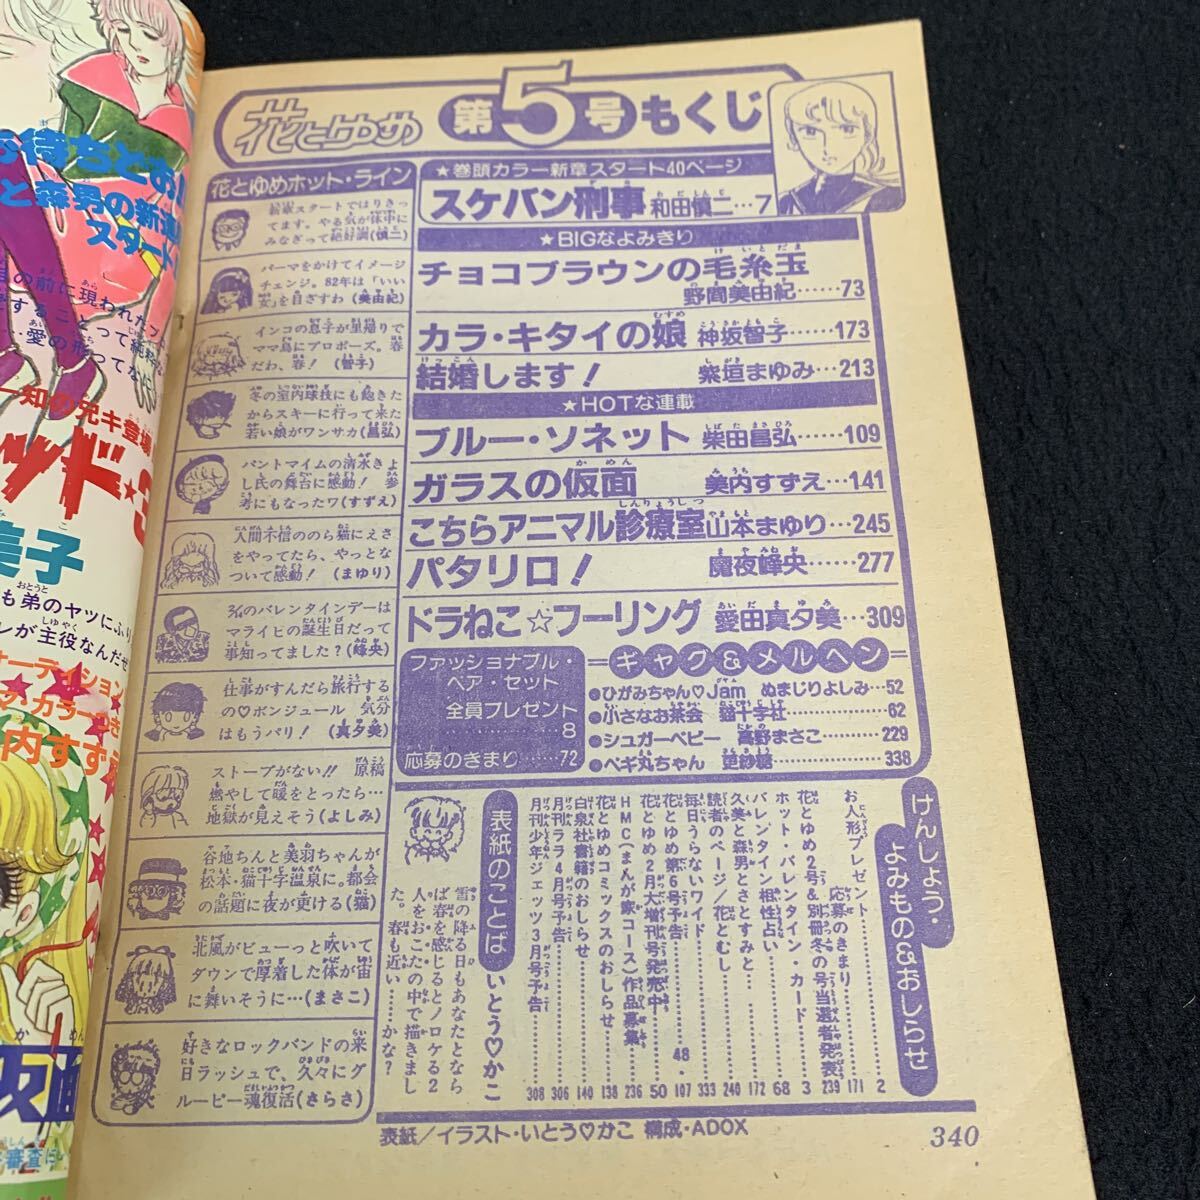 花とゆめ 第5号もくじ
★巻頭カラー新章スタート40ページ
スケバン刑事 和田慎二…7
★BIGなよみきり
チョコブラウンの毛糸玉
野間美由紀……73
カラ・キタイの娘 神坂智子……173
結婚します! 柴垣まゆみ…213
★HOTな連載
ブルー・ソネット 柴田昌弘…109
ガラスの仮面 美内すずえ…141
こちらアニマル診療室 山本まゆり…245
パタリロ! 魔夜峰央…277
ドラねこ☆フーリング 愛田真夕美…309
ファッショナブル・
ペア・セット
全員プレゼント
8
応募のきまり……72
ギャグ&メルヘン
●ひがみちゃん♡Jam ぬまじりよしみ…52
●小さなお茶会 猫十字社……62
●シュガーベビー 高野まさこ……229
●ペギ丸ちゃん 更紗糖……338
花とゆめホット・ライン
新章スタートではりきっ
てます。やる気が体中に
みなぎって絶好調(慎二)
パーマをかけてイメージ
チェンジ。82年は「いい
女」を目ざすわ(美由紀)
インコの息子が里帰りで
ママ鳥にプロポーズ。春
だわ、春!(智子)
冬の室内球技にも飽きた
からスキーに行って来た
若い娘がワンサカ(昌弘)
パントマイムの清水きよ
し氏の舞台に感動! 参
考にもなったワ(すずえ)
人間不信ののら猫にえさ
をやってたら、やっとな
ついて感動!(まゆり)
2/14のバレンタインデーは
マライヒの誕生日だって
事知ってました?(峰央)
仕事がすんだら旅行する
の♡ボンジュール 気分
はもうパリ!(真夕美)
ストーブがない!! 原稿
燃やして暖をとったら…
地獄が見えそう(よしみ)
谷地ちんと美羽ちゃんが
松本・猫十字温泉に。都会
の話題に夜が更ける(猫)
北風がビューっと吹いて
ダウンで厚着した体が宙
に舞いそうに…(まさこ)
好きなロックバンドの来
日ラッシュで、久々にグ
ルーピー魂復活(さらさ)
けんしょう・
よみもの&おしらせ
お人形プレゼント……2
応募のきまり……171
花とゆめ2号&別冊冬の号当選者発表…239
ホット・バレンタイン・カード……3
バレンタイン相性占い……68
久美と森男とさとすみと……172
読者のページ/花とむし……240
毎日うらないワイド……333
花とゆめ第6号予告……107
花とゆめ2月大増刊号発売中……48・50
HMC(まんが家コース)作品募集……236
花とゆめコミックスのおしらせ……138
白泉社書籍のおしらせ……140
月刊ララ4月号予告……306
月刊少年ジェッツ3月号予告……308
表紙のことば いとう♡かこ
雪の降る日もあなたとなら
ば春を感じるとノロケる2
人をおこたの中で描きまし
た。春も近い……かな?
表紙/イラスト・いとう♡かこ 構成・ADOX
340